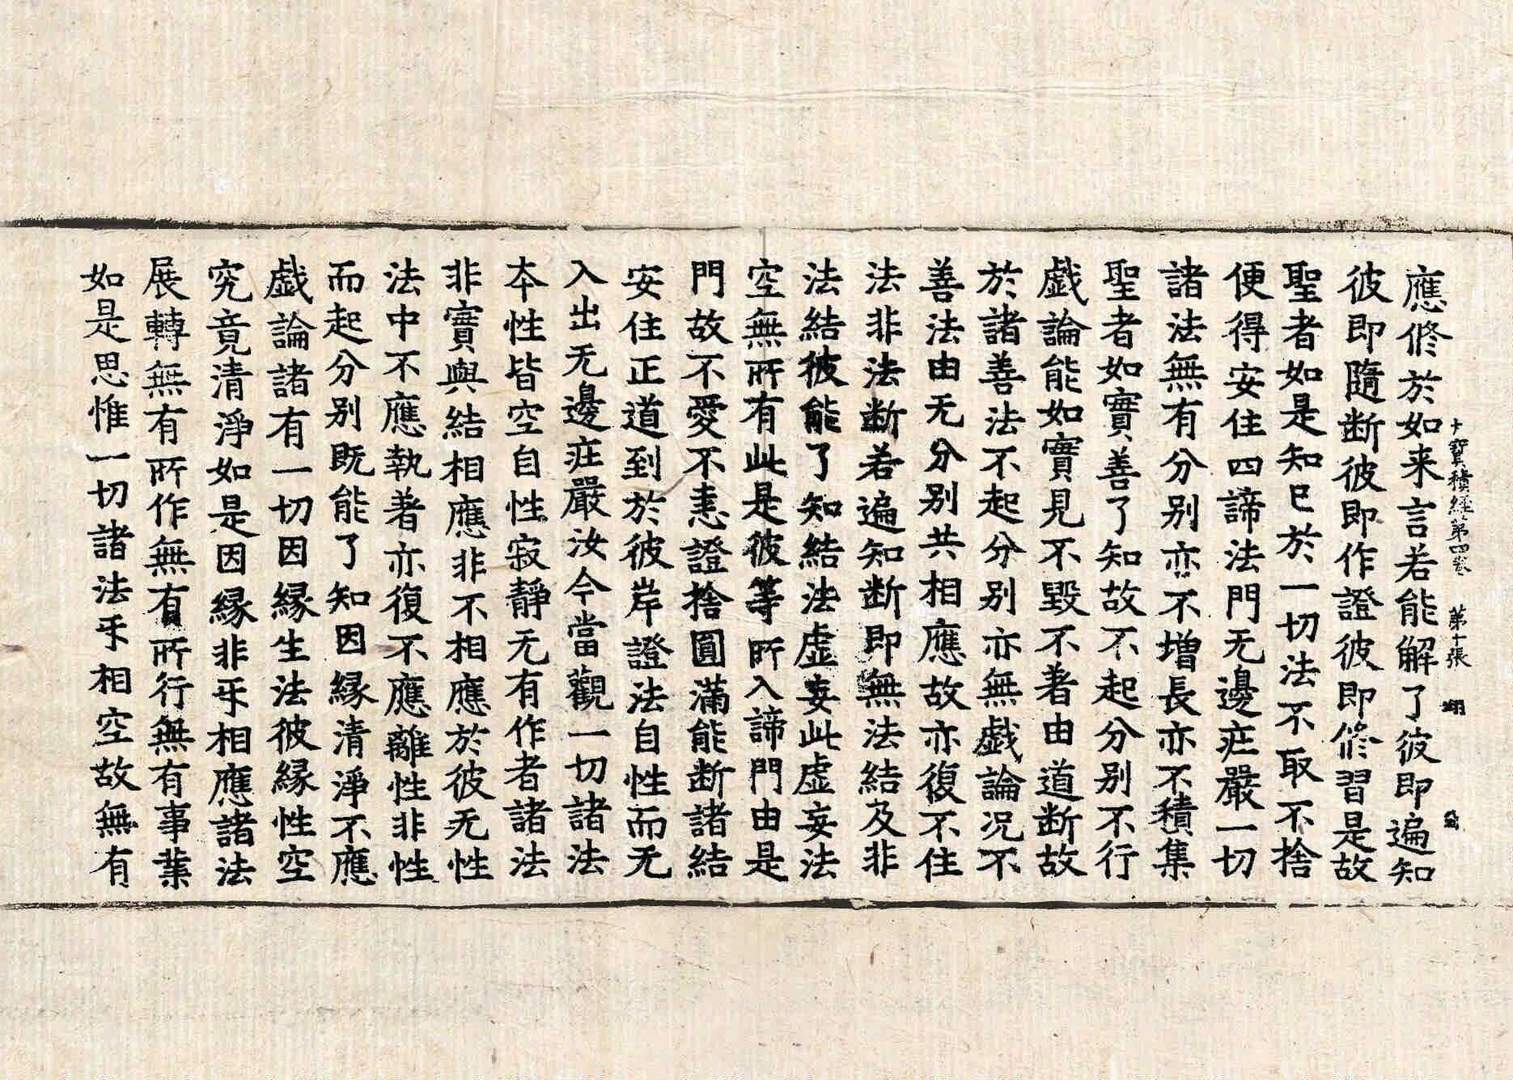 大寶積經第四卷 第十張 翔
應修於如来言若能解了彼即遍知
彼即隨断彼即作證彼即修習是故
聖者如是知已於一切法不取不捨
便得安住四諦法門无邊庄嚴一切
諸法無有分別亦不增長亦不積集
聖者如實善了知故不起分別不行
戯論能如實見不毀不著由道断故
於諸善法不起分別亦無戯論況不
善法由无分別共相應故亦復不住
法非法断若遍知断即無法結及非
法結彼能了知結法虚妄此虚妄法
空無所有此是彼等所入諦門由是
門故不愛不恚證捨圓滿能断諸結
安住正道到於彼岸證法自性而无
入出无邊庄嚴汝今當觀一切諸法
夲性皆空自性寂靜无有作者諸法
非實與結相應非不相應於彼无性
法中不應執著亦復不應離性非性
而起分別既能了知因縁清淨不應
戯論諸有一切因縁生法彼縁性空
究竟清淨如是因縁非㸦相應諸法
展轉無有所作無有所行無有事業
如是思惟一切諸法㸦相空故無有